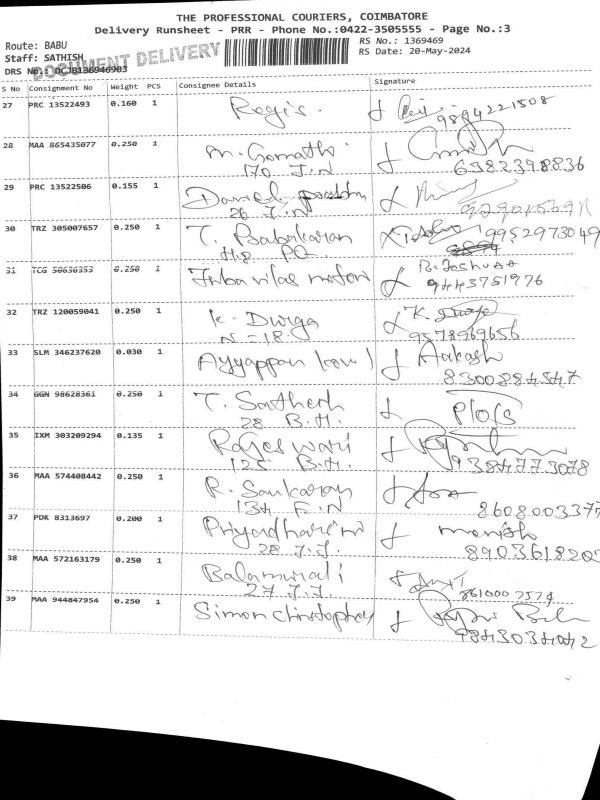 THE PROFESSIONAL COURIERS, COIMBATORE
Delivery Runsheet - PRR - Phone No.:0422-3505555 - Page No.:3
Route: BABU
RS No.: 1369469
Staff: SATHISH
RS Date: 20-May-2024
DOCUMENT DELIVERY
DRS NO.: DCJB136946903
S No Consignment No Weight PCS Consignee Details Signature
27 PRC 13522493 0.160 1 Regis.
9894221508
28 MAA 865435077 0.250 1 M. Gomathi
170 J.N 6382398836
29 PRC 13522506 0.155 1 Daniel
26 J.N
30 TRZ 305007657 0.250 1 T. Babakaran 9952973049
31 TCG 50636353 0.250 1 R. Joshuaa
9443751976
32 TRZ 120059041 0.250 1 K. Durga K. Durga
N-18. 9578969656
33 SLM 346237620 0.030 1 Ayyappan Aakash
8300884547
34 GGN 98628361 0.250 1 T. Sathesh
28 B.H.
35 IXM 303209294 0.135 1 Rajeswari
125 B.H. 9384773078
36 MAA 574408442 0.250 1 R. Sankaran
134 F.N 8608003377
37 PDK 8313697 0.200 1 Priyadharsini manish
28 J.J. 8903618203
38 MAA 572163179 0.250 1 Balamurali
27 J.J 861000 7574
39 MAA 944847954 0.250 1 Simon christopher
9843034042